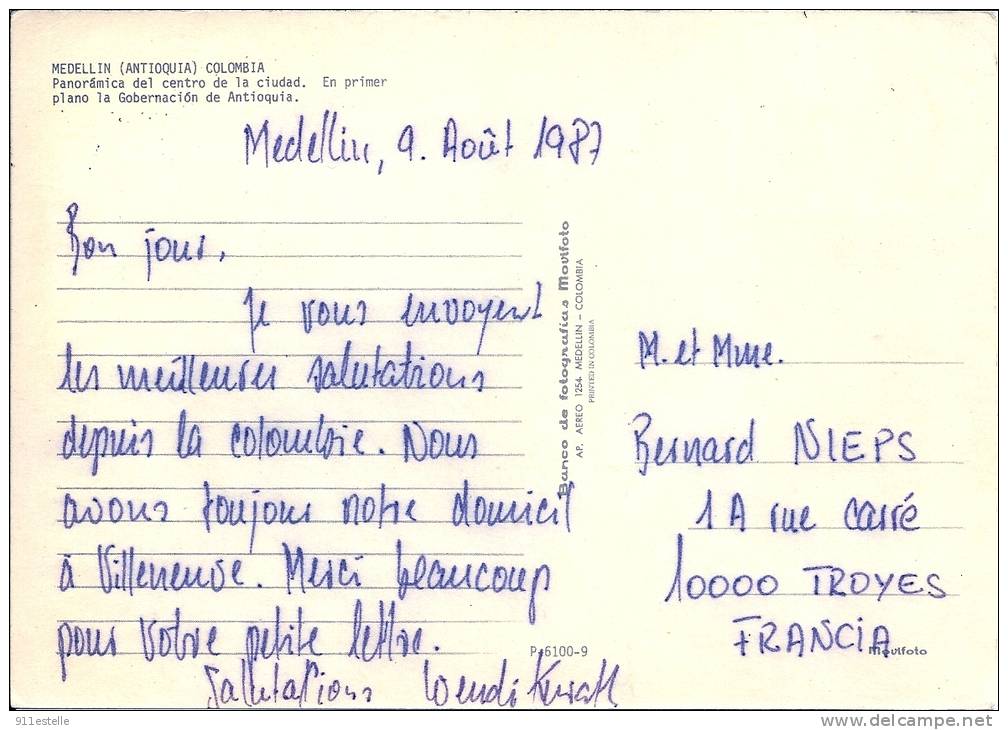 MEDELLIN (ANTIOQUIA) COLOMBIA
Panorámica del centro de la ciudad. En primer
plano la Gobernación de Antioquia.
Medellin, 9. Août 1987
Bon jour,
Je vous envoyent
les meilleures salutations
depuis la colombie. Nous
avons toujour notre domicil
à Villeneuve. Merci beaucoup
pour votre petite lettre.
Salutations Wendi
Banco de fotografias Movifoto
AP. AEREO 1254 MEDELLIN - COLOMBIA
PRINTED IN COLOMBIA
M. et Mme.
Bernard NIEPS
1A rue carré
10000 TROYES
FRANCIA
P-6100-9
Movifoto
911estelle
delcampe.net